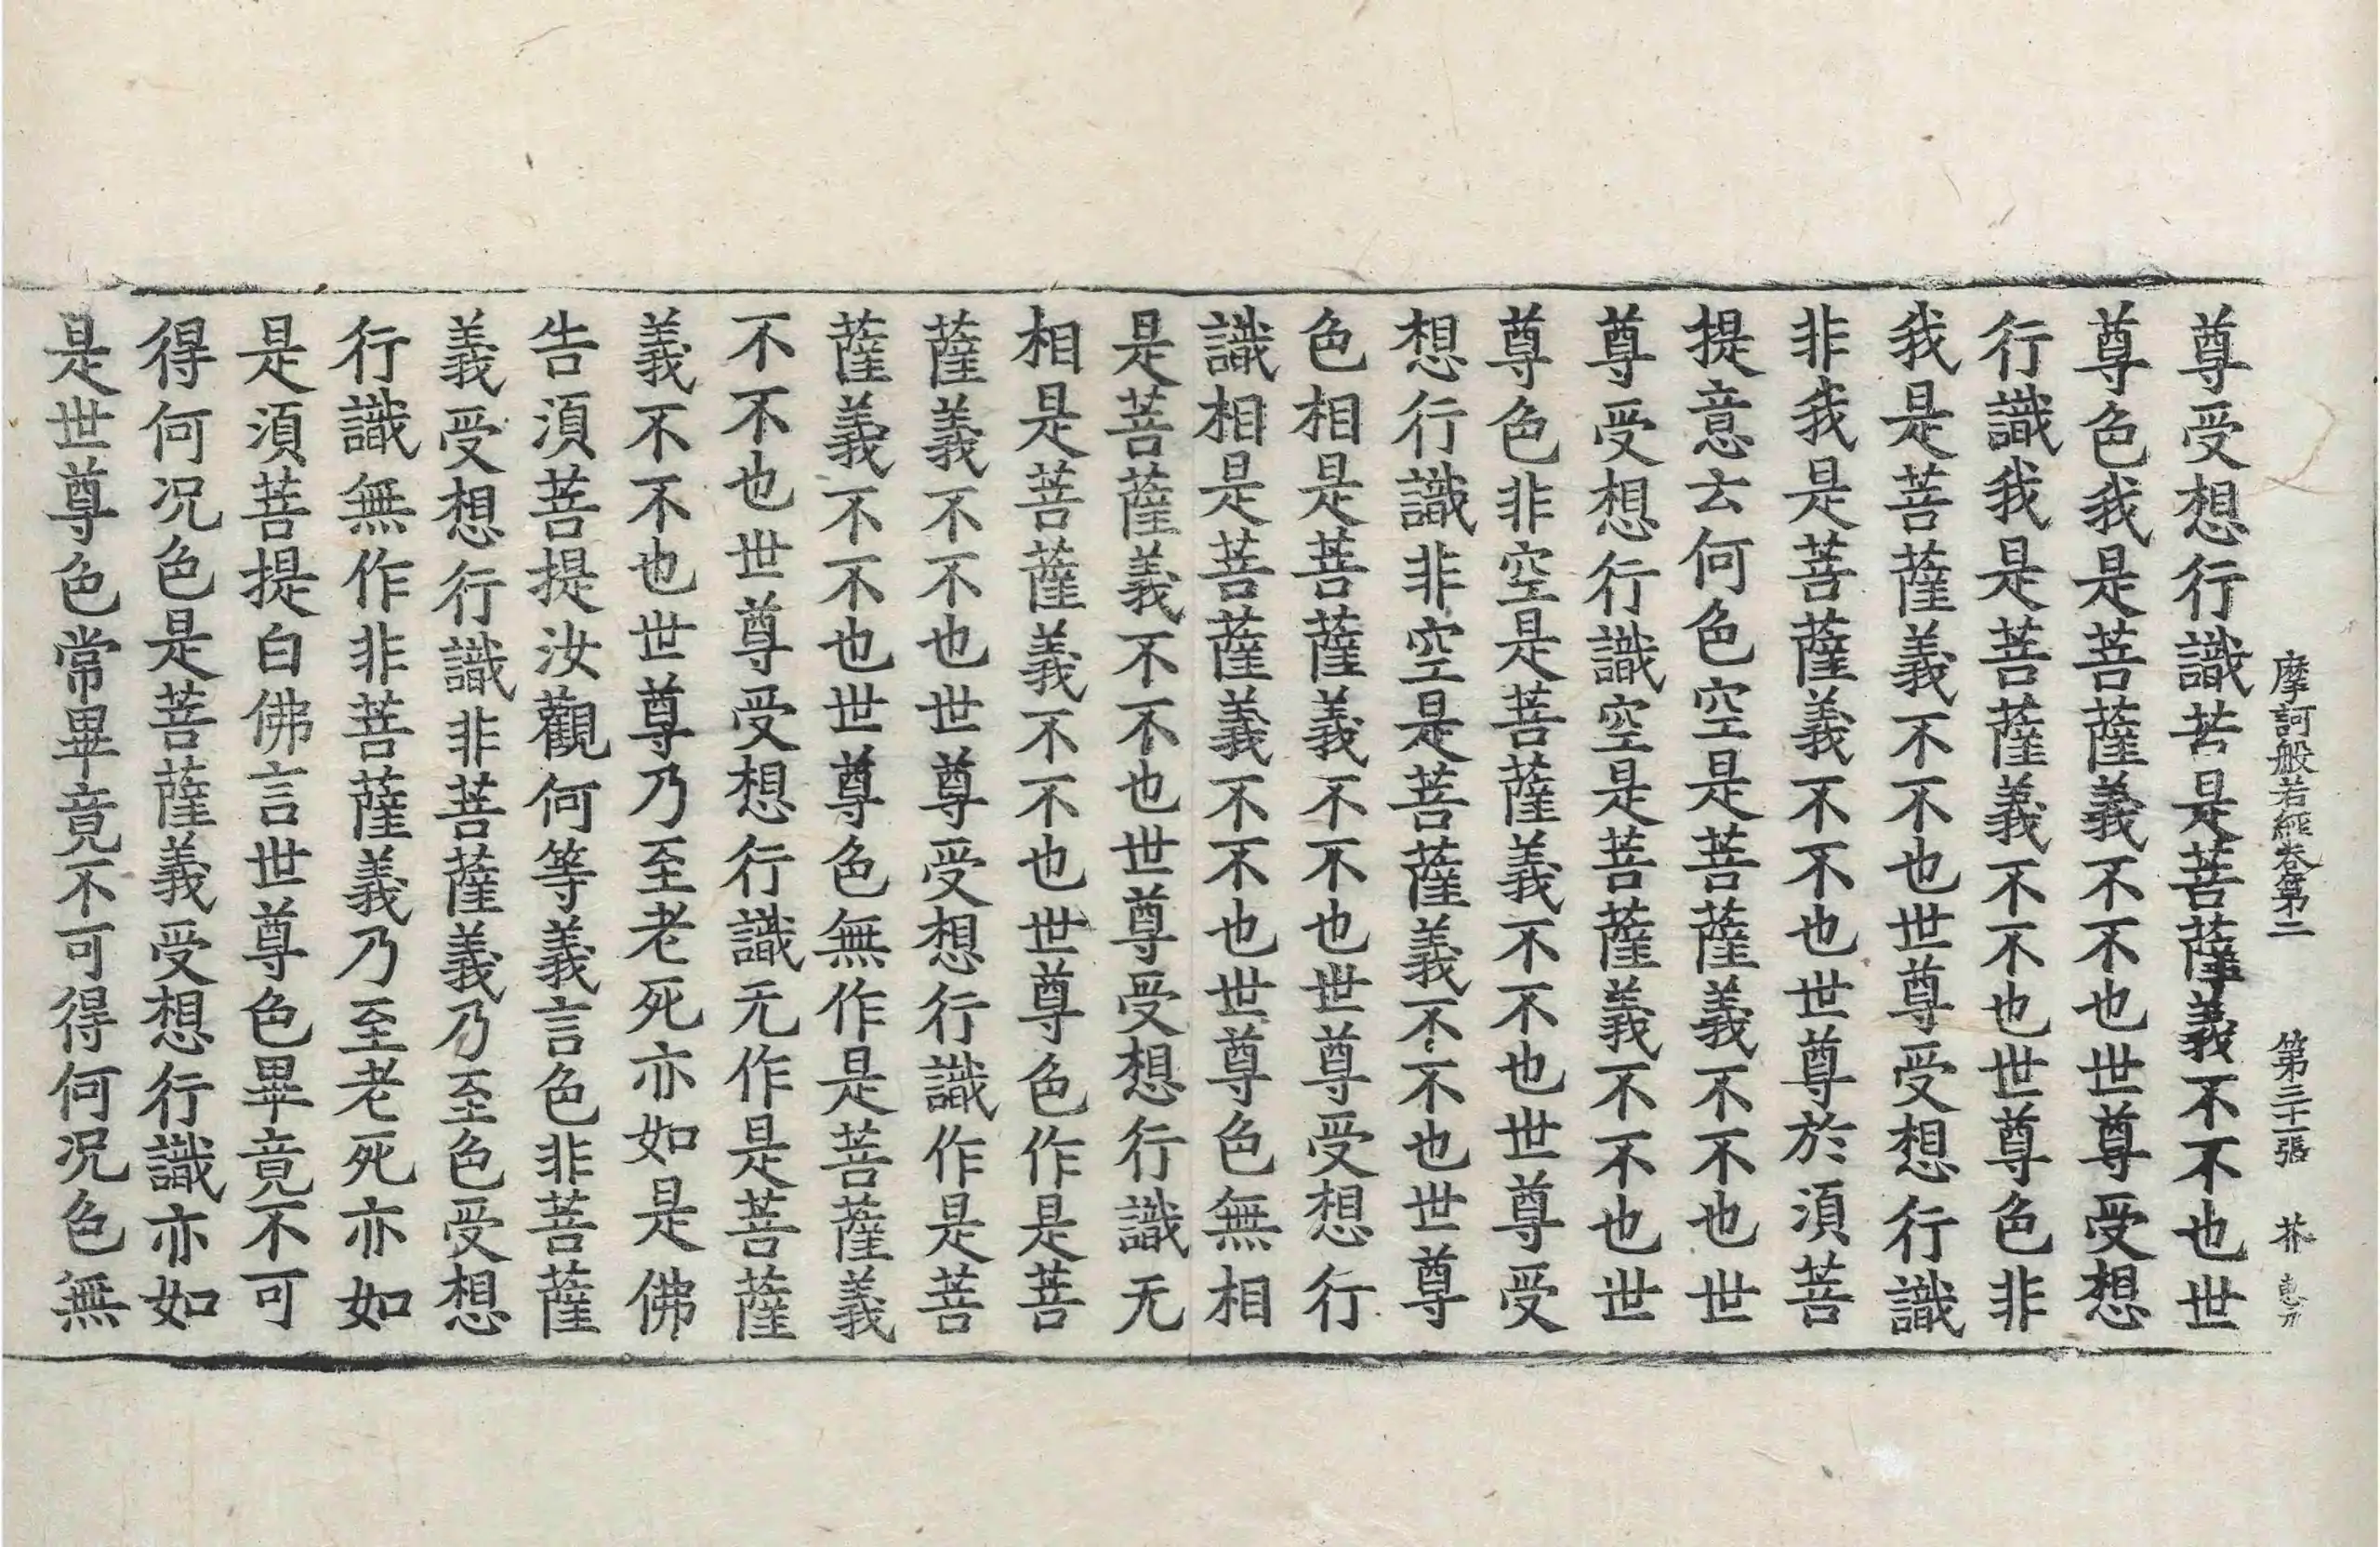 摩訶般若經卷第二 第三十一張 芥 惠刀
尊受想行識苦是菩薩義不不也世
尊色我是菩薩義不不也世尊受想
行識我是菩薩義不不也世尊色非
我是菩薩義不不也世尊受想行識
非我是菩薩義不不也世尊於須菩
提意云何色空是菩薩義不不也世
尊受想行識空是菩薩義不不也世
尊色非空是菩薩義不不也世尊受
想行識非空是菩薩義不不也世尊
色相是菩薩義不不也世尊受想行
識相是菩薩義不不也世尊色無相
是菩薩義不不也世尊受想行識无
相是菩薩義不不也世尊色作是菩
薩義不不也世尊受想行識作是菩
薩義不不也世尊色無作是菩薩義
不不也世尊受想行識无作是菩薩
義不不也世尊乃至老死亦如是佛
告須菩提汝觀何等義言色非菩薩
義受想行識非菩薩義乃至色受想
行識無作非菩薩義乃至老死亦如
是須菩提白佛言世尊色畢竟不可
得何况色是菩薩義受想行識亦如
是世尊色常畢竟不可得何况色無